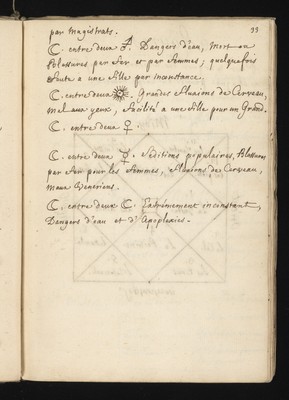 33
par magistrats.
☾. entre deux ♂. Dangers d'eau, Mort ou
blessures par fer et par femmes; quelquefois
faute a une fille par inconstance.
☾. entre deux ☉. Grandes fluxions de Cerveau,
mal aux yeux, facilité a une fille pour un Grand.
☾. entre deux ♀.
☾. entre deux ☿. Séditions populaires, blessures
par fer pour les femmes, fluxions de Cerveau,
maux Veneriens.
☾. entre deux ☾. Extrêmement inconstant,
Dangers d'eau et d'Apoplexies.